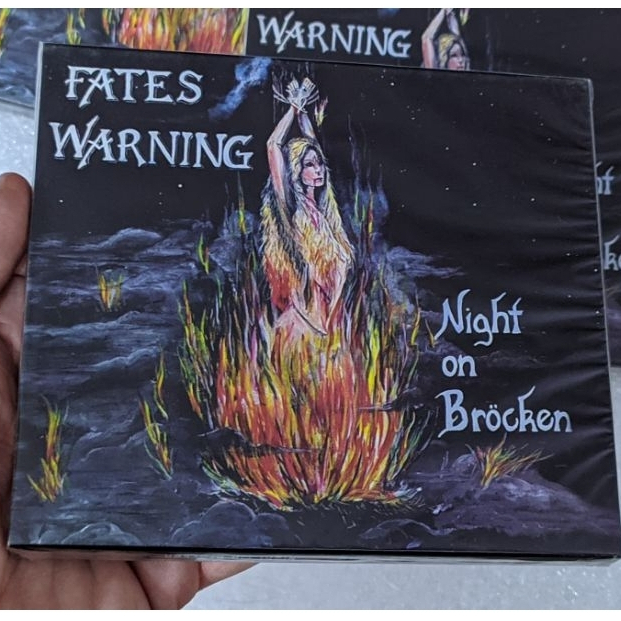 WARNING
FATES
WARNING
Night
on
Bröcken